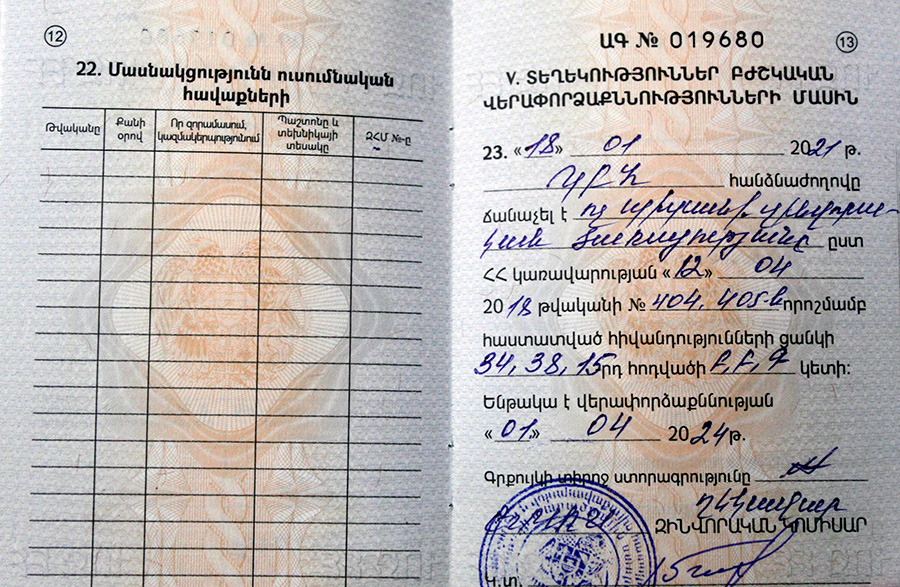 12
22. Մասնակցությունն ուսումնական
հավաքների
Թվականը
Քանի
օրով
Որ զորամասում,
կազմակերպությունում
Պաշտոնը և
տեխնիկայի
տեսակը
ԶՀՄ №-ը
ԱԳ № 019680
13
V. ՏԵՂԵԿՈՒԹՅՈՒՆՆԵՐ ԲԺՇԿԱԿԱՆ
ՎԵՐԱՓՈՐՁԱՔՆՆՈՒԹՅՈՒՆՆԵՐԻ ՄԱՍԻՆ
23. «18» 01 2021 թ.
հանձնաժողովը
ճանաչել է ոչ պիտանի զինվորա-
կան ծառայությանը ըստ
ՀՀ կառավարության «12» 04
2018 թվականի № 404, 405-Ն որոշմամբ
հաստատված հիվանդությունների ցանկի
34, 38, 15 րդ հոդվածի կետի:
Ենթակա է վերափորձաքննության
«01» 04 2024 թ.
Գրքույկի տիրոջ ստորագրությունը
ԶԻՆՎՈՐԱԿԱՆ ԿՈՄԻՍԱՐ
Կ.Տ.